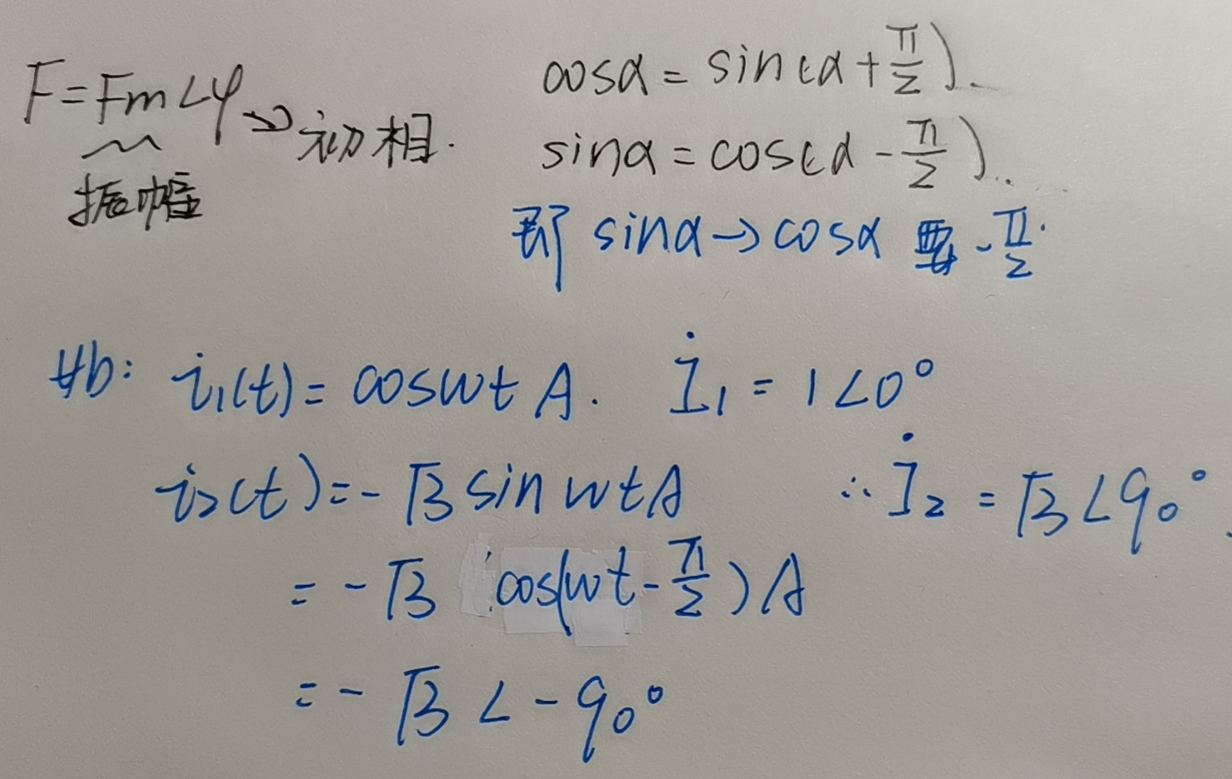 F=Fm∠φ→初相.
振幅
cosα=sin(α+π/2).
sinα=cos(α-π/2)..
即 sinα→cosα 要-π/2.
如: i₁(t)=coswt A. İ₁=1∠0°
i₂(t)=-√3 sin wt A ∴ İ₂=√3∠90°.
=-√3 cos(wt-π/2)A
=-√3∠-90°